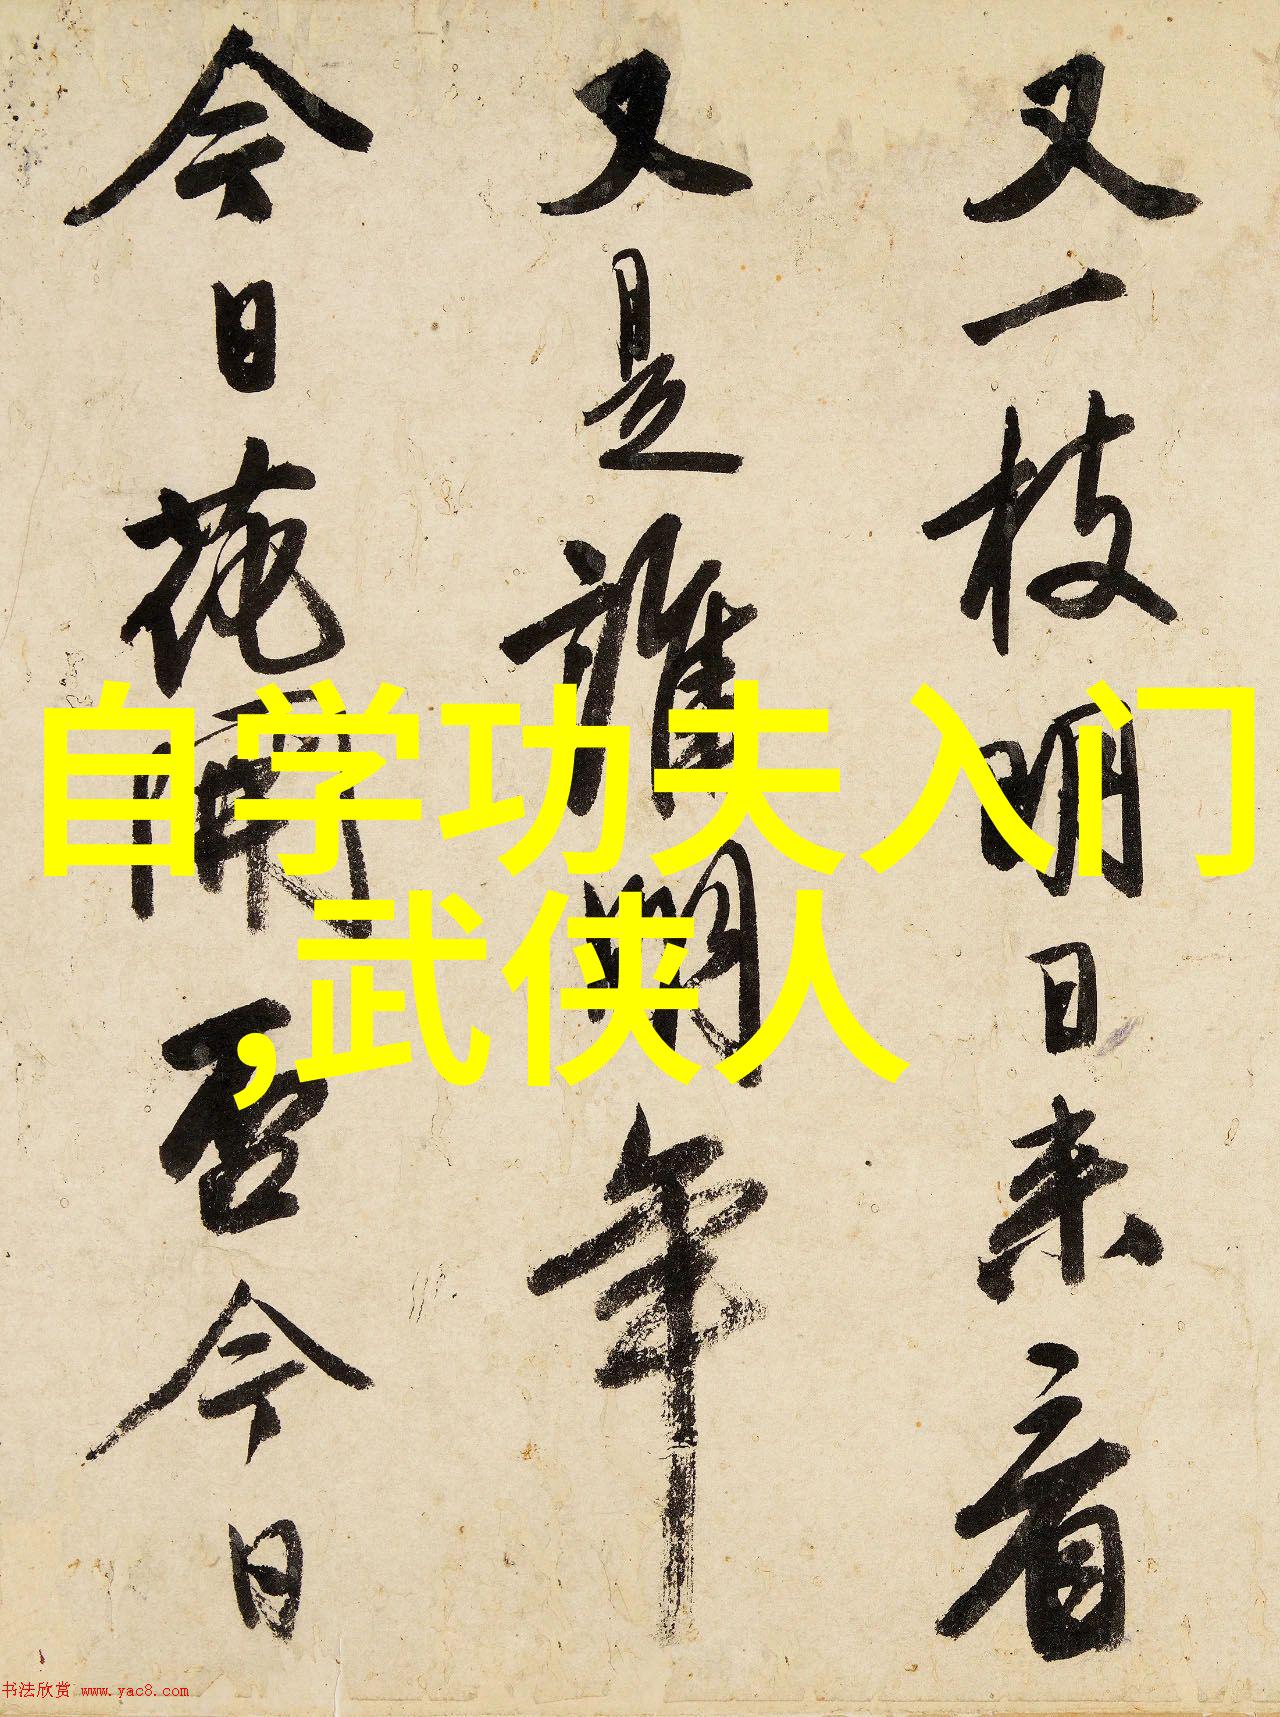 又一枝明日来看
又是誰明年
今日花開否今日
自学功夫入门
,武侠人
书法欣赏 www.yac8.com